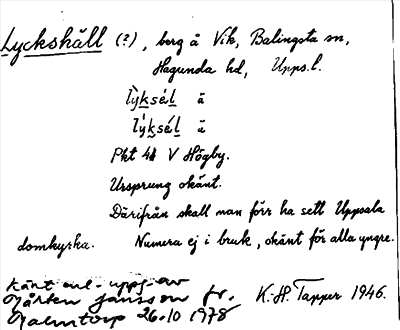 Lyckshäll (?), berg å Vik, Balingsta sn,
Hagunda hd, Upps.l.
lýksέl ä
lýksέl ä
Pkt 41 V Högby.
Ursprung okänt.
Därifrån skall man förr ha sett Uppsala
domkyrka. Numera ej i bruk, okänt för alla yngre.
Känt enl. uppg. av
Mårten Jansson fr. K.-H. Tapper 1946.
26.10 1978